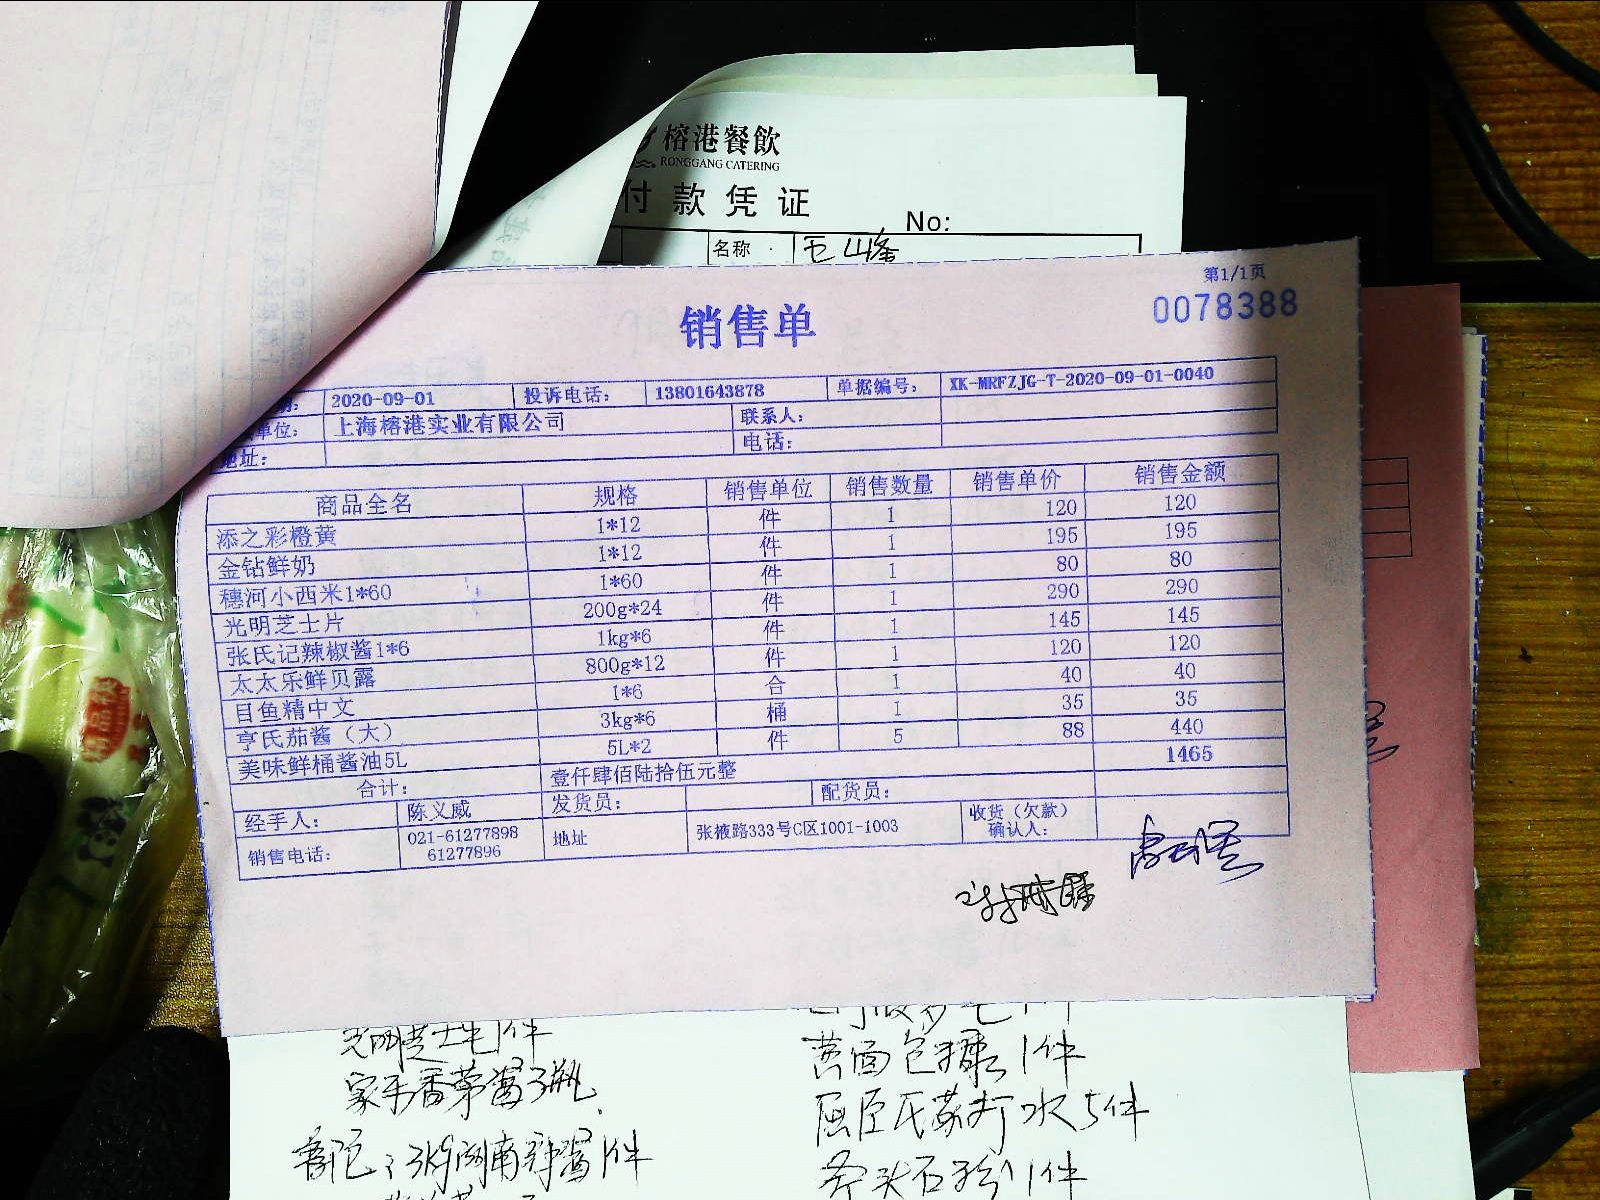 榕港餐飲
RONGGANG CATERING
付款凭证
No:
名称
第1/1页
0078388
销售单
2020-09-01 投诉电话: 13801643878 单据编号: XK-MRFZJG-T-2020-09-01-0040
单位: 上海榕港实业有限公司 联系人:
地址: 电话:
商品全名 规格 销售单位 销售数量 销售单价 销售金额
添之彩橙黄 1*12 件 1 120 120
金钻鲜奶 1*12 件 1 195 195
穗河小西米1*60 1*60 件 1 80 80
光明芝士片 200g*24 件 1 290 290
张氏记辣椒酱1*6 1kg*6 件 1 145 145
太太乐鲜贝露 800g*12 件 1 120 120
目鱼精中文 1*6 合 1 40 40
亨氏茄酱（大） 3kg*6 桶 1 35 35
美味鲜桶酱油5L 5L*2 件 5 88 440
合计: 壹仟肆佰陆拾伍元整 1465
经手人: 陈义威 发货员: 配货员:
销售电话: 021-61277898 61277896 地址 张掖路333号C区1001-1003 收货（欠款）确认人:
黄面包糠1件
屈臣氏苏打水5件